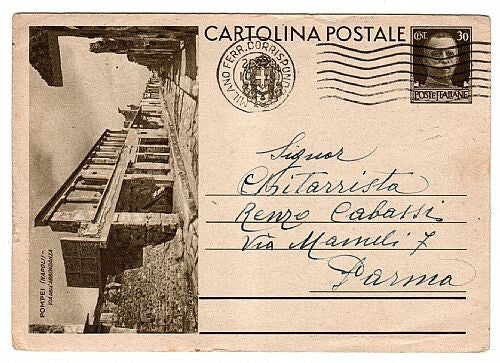 CARTOLINA POSTALE
CENT. 30
POSTE ITALIANE
MILANO FERR. CORRISPOND
Signor
Chitarrista
Renzo Cabassi
Via Mameli 7
Parma
POMPEI (NAPOLI) -
VIA DELL'ABBONDANZA